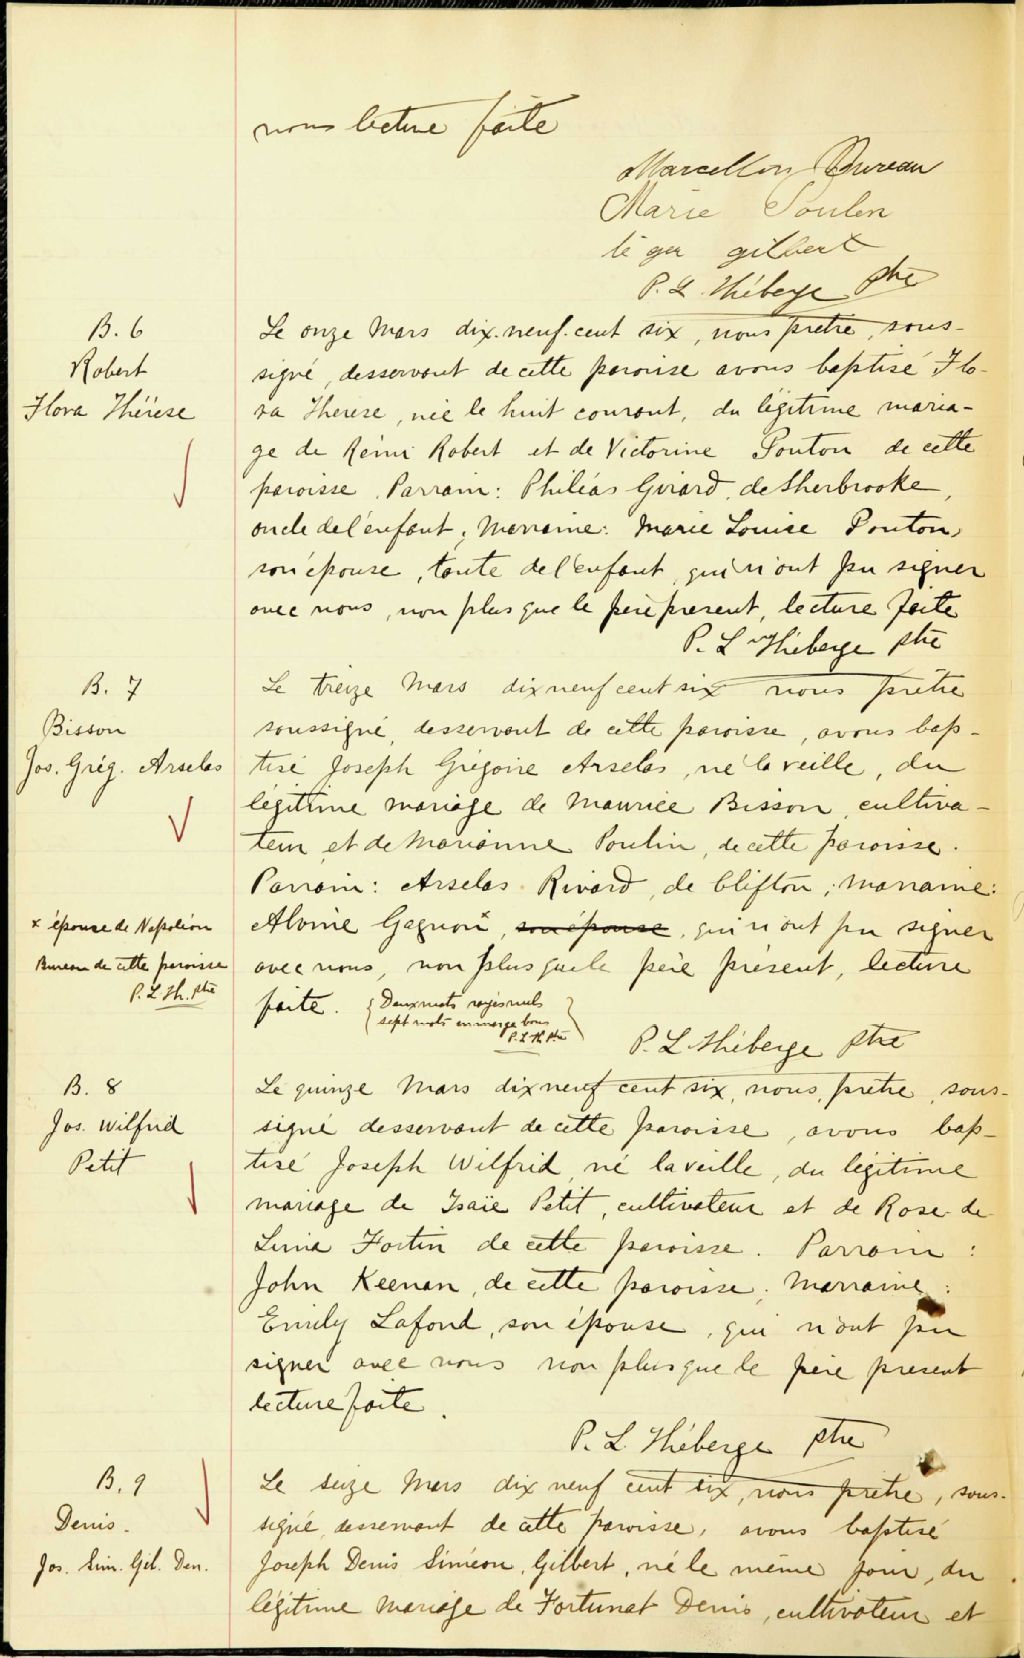 nous lecture faite
Marcellin Bureau
Marie Poulin
léger gilbert
P. L. Théberge ptre
B. 6
Robert
Flora Thérèse
Le onze Mars dix-neuf-cent six, nous prêtre, sous-
signé, desservant de cette paroisse avons baptisé Flo-
ra Therese, née le huit courant, du légitime maria-
ge de Rémi Robert et de Victorine Ponton de cette
paroisse. Parrain: Philéas Girard, de Sherbrooke,
oncle de l'enfant; Marraine: Marie Louise Ponton,
son épouse, tante de l'enfant, qui n'ont pu signer
avec nous, non plus que le père present, lecture faite
P. L. Théberge ptre
B. 7
Bisson
Jos. Grég. Arselas
Le treize Mars dix neuf cent six nous prêtre
soussigné, desservant de cette paroisse, avons bap-
tisé Joseph Grégoire Arselas, né la veille, du
légitime mariage de Maurice Bisson, cultiva-
teur, et de Marianne Poulin, de cette paroisse.
Parrain: Arselas Rivard, de Clifton; Marraine:
x épouse de Napoléon
Bureau de cette paroisse
P. L. Th. ptre
Alvine Gagnon x, son épouse, qui n'ont pu signer
avec nous, non plus que le père présent, lecture
faite. { Deux mots rayés nuls
sept mots en marge bons
P. L. Th. ptre }
P. L. Théberge ptre
B. 8
Jos. Wilfrid
Petit
Le quinze Mars dix neuf cent six, nous, prêtre, sous-
signé desservant de cette paroisse, avons bap-
tisé Joseph Wilfrid, né la veille, du légitime
mariage de Isaïe Petit, cultivateur et de Rose-de-
Lima Fortin de cette paroisse. Parrain:
John Keenan, de cette paroisse; Marraine:
Emily Lafond, son épouse, qui n'ont pu
signer avec nous non plus que le père present
lecture faite.
P. L. Théberge ptre
B. 9
Denis.
Jos. Sim. Gil. Den.
Le seize Mars dix neuf cent six, nous prêtre, sous-
signé, desservant de cette paroisse, avons baptisé
Joseph Denis Siméon, Gilbert, né le même jour, du
légitime Mariage de Fortunat Denis, cultivateur et